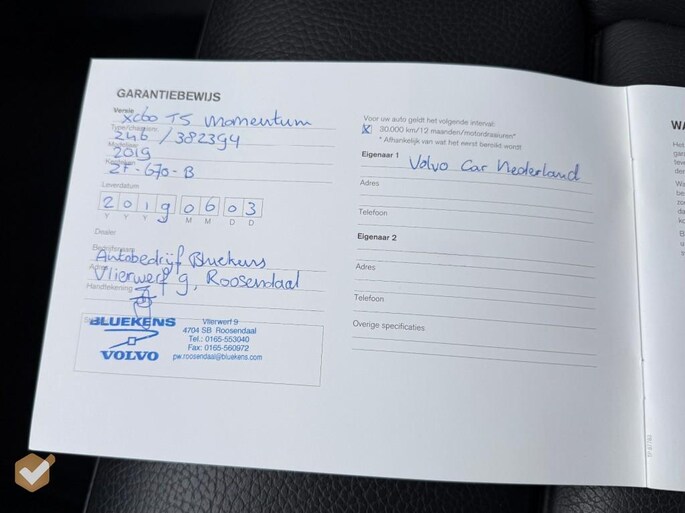 GARANTIEBEWIJS
Versie
XC60 T5 Momentum
Type/chassisnr.
246 / 382394
Modeljaar
2019
Kenteken
ZF-670-B
Leverdatum
2 0 1 9 0 6 0 3
Y Y Y Y M M D D
Dealer
Bedrijfsnaam
Autobedrijf Bluekens
Adres
Vlierwerf 9, Roosendaal
Handtekening
BLUEKENS
VOLVO
Vlierwerf 9
4704 SB Roosendaal
Tel.: 0165-553040
Fax: 0165-560972
pw.roosendaal@bluekens.com
Voor uw auto geldt het volgende interval:
X 30.000 km/12 maanden/motordraaiuren*
* Afhankelijk van wat het eerst bereikt wordt
Eigenaar 1
Volvo Car Nederland
Adres
Telefoon
Eigenaar 2
Adres
Telefoon
Overige specificaties